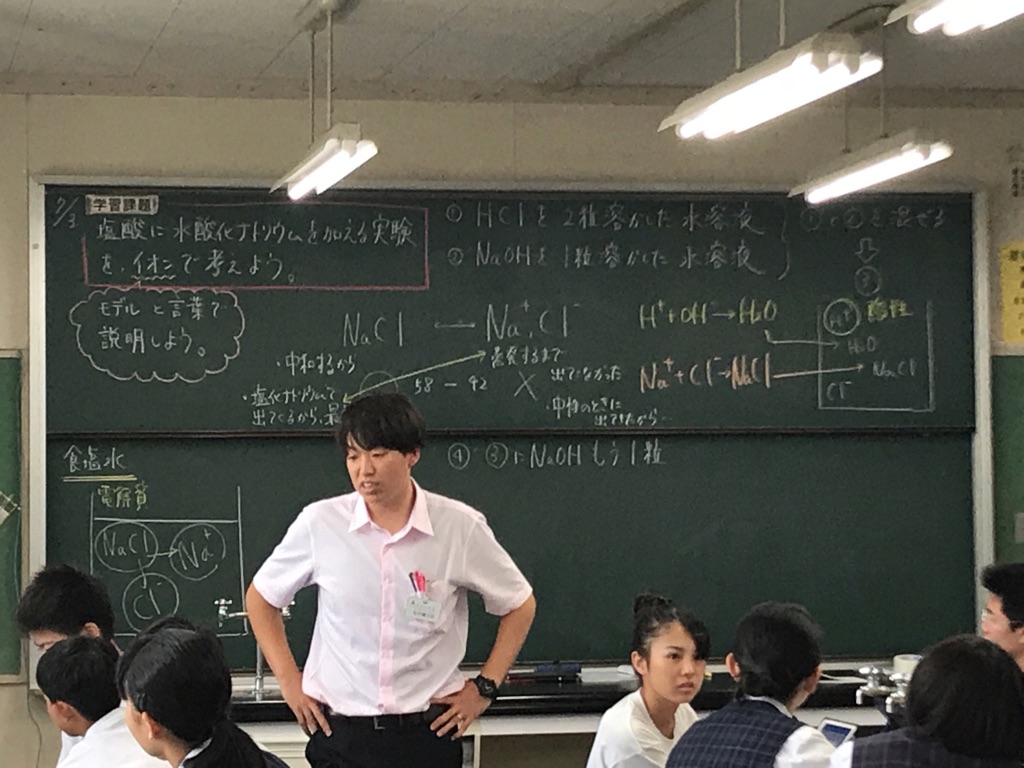 7/3
学習課題
塩酸に水酸化ナトリウムを加える実験
を、イオンで考えよう。
モデルと言葉で
説明しよう。
① HClを2粒溶かした水溶液
② NaOHを1粒溶かした水溶液
①と②を混ぜる
⇩
③
NaCl ← Na⁺, Cl⁻
・中和するから
・塩化ナトリウムって
出てくるから、
58 - 42
蒸発するまで
出ていなかった
・中和のときに
出てきたから…
H⁺+OH⁻→H₂O
Na⁺+Cl⁻→NaCl
H⁺ 酸性
H₂O
NaCl
Cl⁻
④ ③にNaOHもう1粒
食塩水
電解質
NaCl → Na⁺
Cl⁻